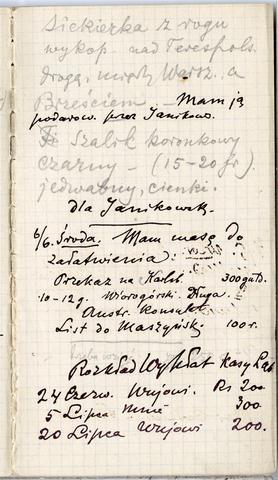 Siekierka z rogu
wykop. nad Terespols.
drogą, między Warsz. a
Brześciem. – Mam ją
podarow. przez Janikow.
Szalik koronkowy
czarny – (15-20 fr.)
jedwabny, cienki.
dla Janikowsk.
6/6. Środa. Mam masę do
załatwienia:
Przekaz na Karlsb. 300 guld.
10-12 g. Wiorogórski. Długa.
Austr. Konsulat
List do Maszyńsk. 100 r.
Rozkład Wypłat Kasy
24 Czerw. Wujowi. Rs 200
5 Lipca mnie 300
20 Lipca Wujowi 200.